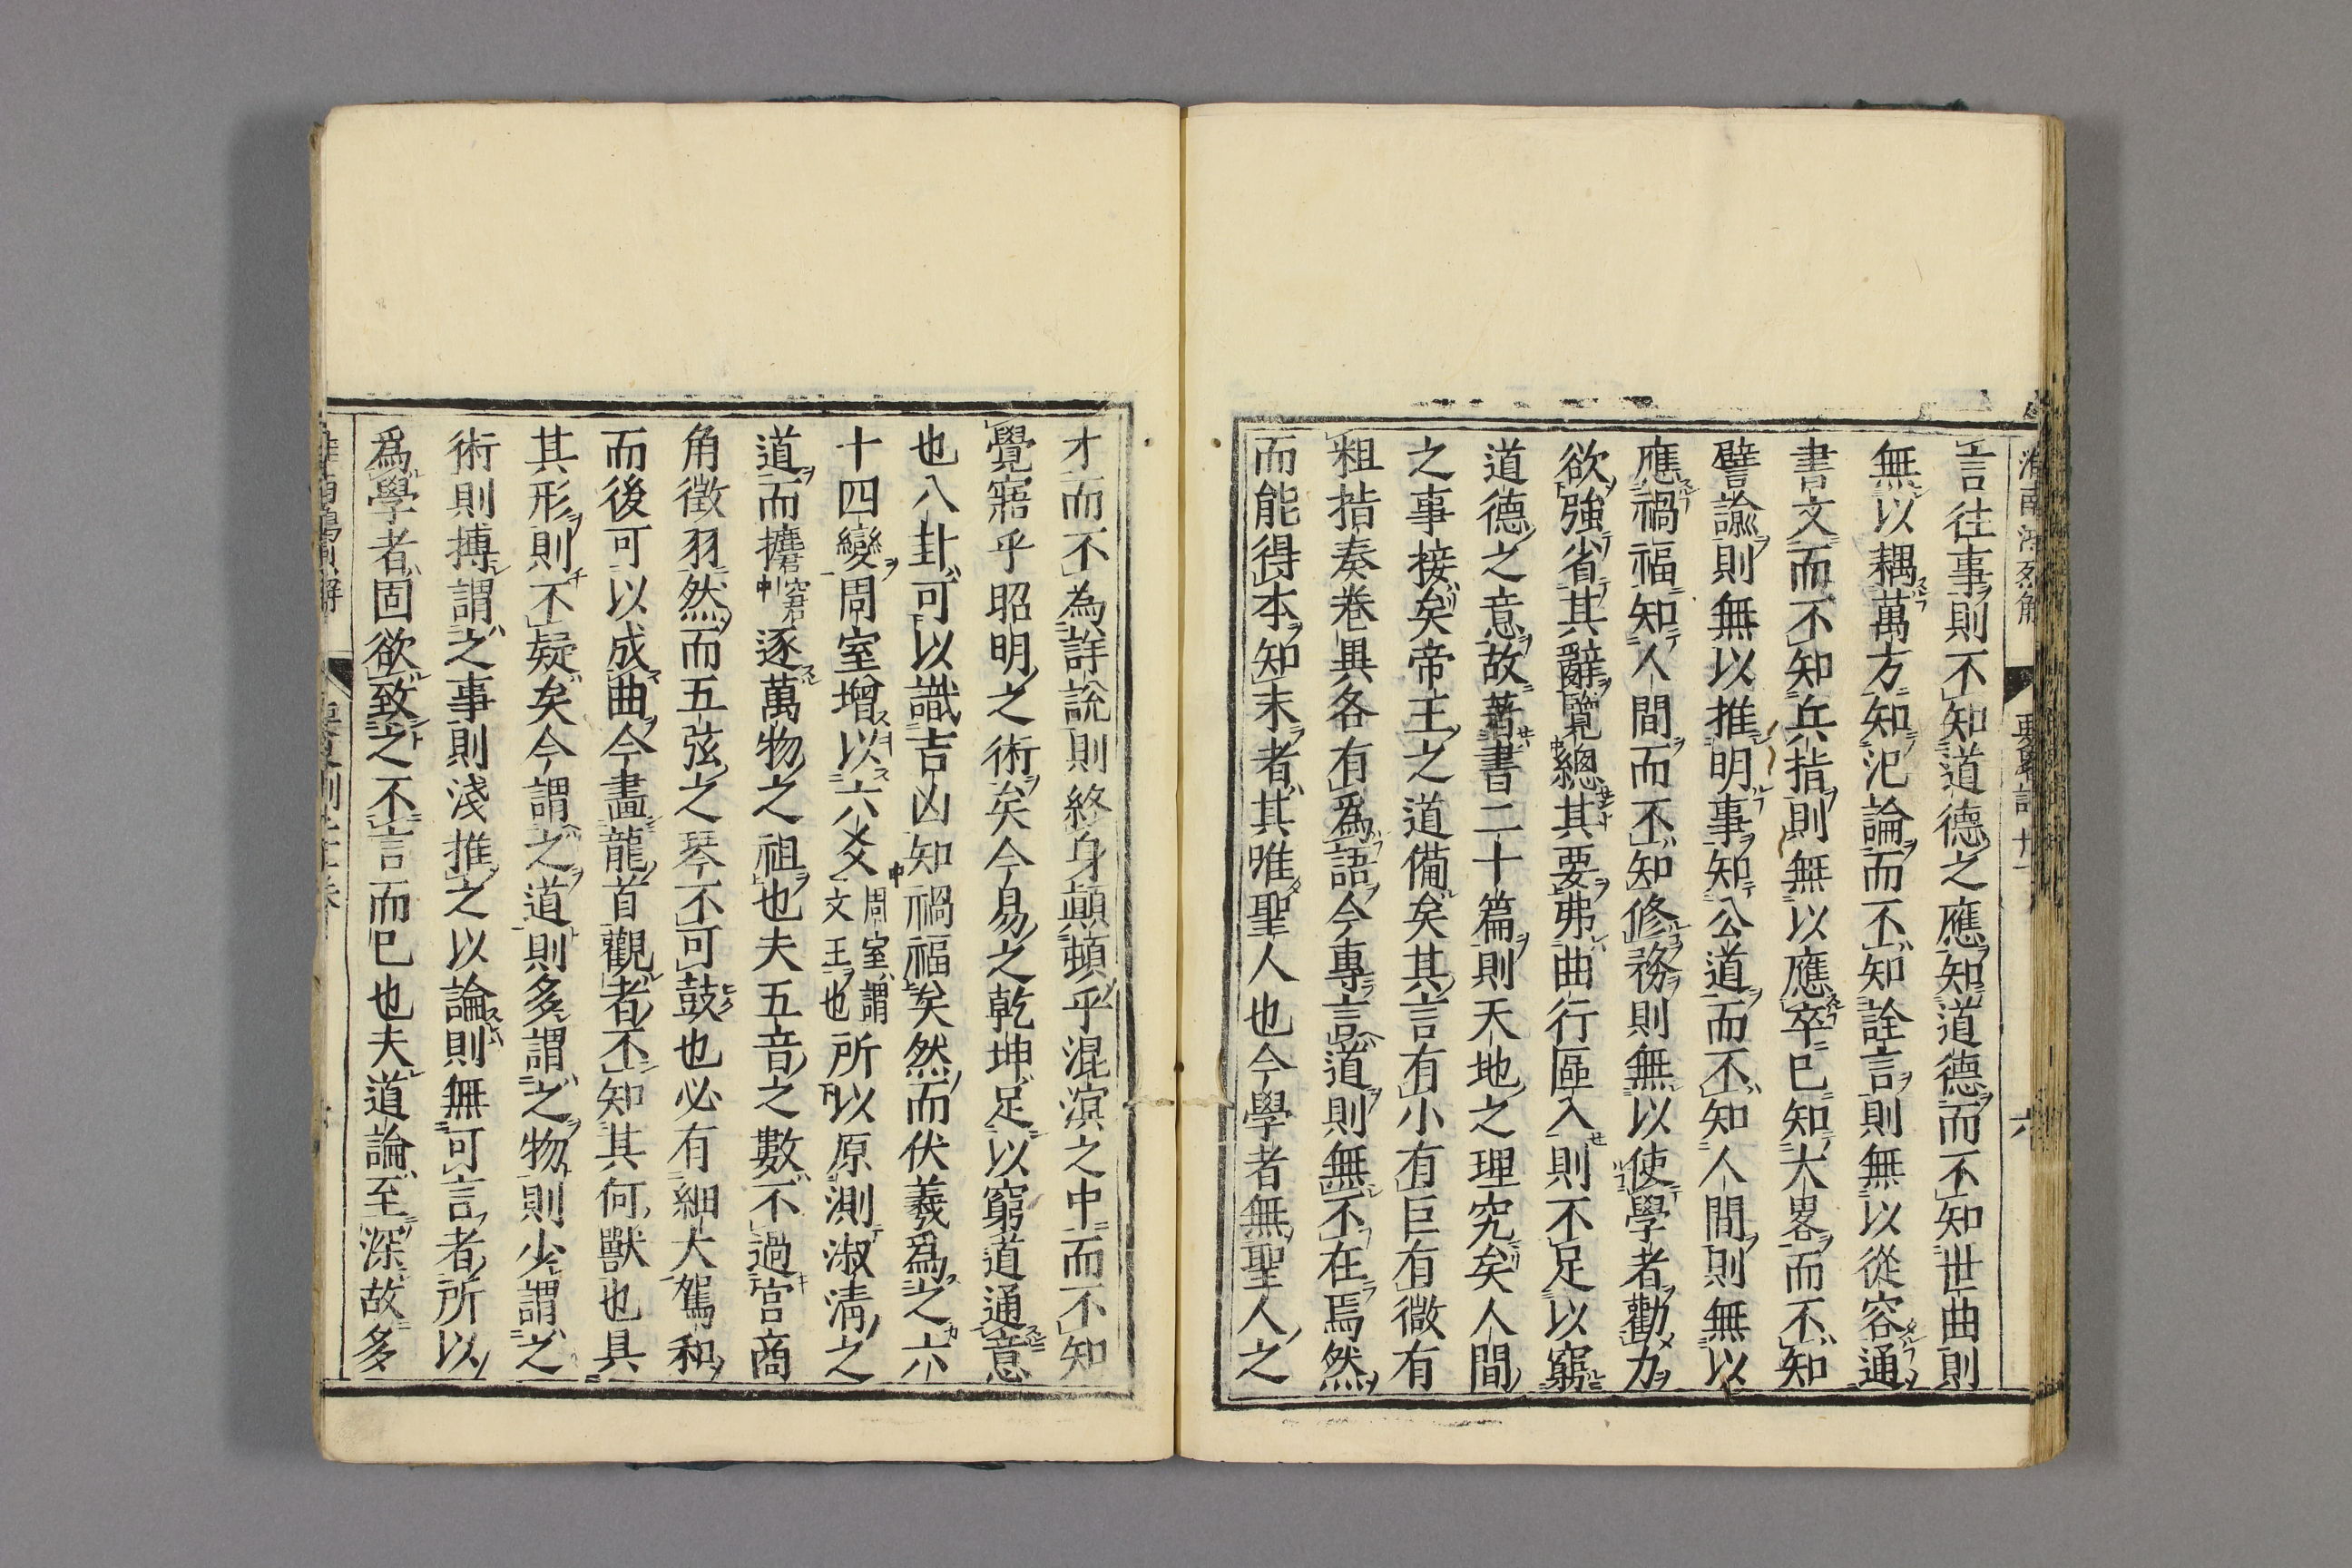 淮南鴻烈解 要畧訓廿一 六
言往事則不知道德之應知道德而不知世曲則
無以耦萬方知氾論而不知詮言則無以從容通
書文而不知兵指則無以應卒已知大畧而不知
譬諭則無以推明事知公道而不知人間則無以
應禍福知人間而不知修務則無以使學者勸力
欲強省其辭覽總其要弗曲行區入則不足以窮
道德之意故著書二十篇則天地之理究矣人間
之事接矣帝王之道備矣其言有小有巨有微有
粗指奏卷異各有爲語今專言道則無不在焉然
而能得本知末者其唯聖人也今學者無聖人之
才而不為詳說則終身顛頓乎混溟之中而不知
覺寤乎昭明之術矣今易之乾坤足以窮道通意
也八卦可以識吉凶知禍福矣然而伏羲爲之六
十四變周室增以六爻周室謂文王也所以原測淑淸之
道而攟逐萬物之祖也夫五音之數不過宮商
角徵羽然而五弦之琴不可鼓也必有細大駕和
而後可以成曲今畫龍首觀者不知其何獸也具
其形則不疑矣今謂之道則多謂之物則少謂之
術則搏謂之事則淺推之以論則無可言者所以
爲學者固欲致之不言而已也夫道論至深故多